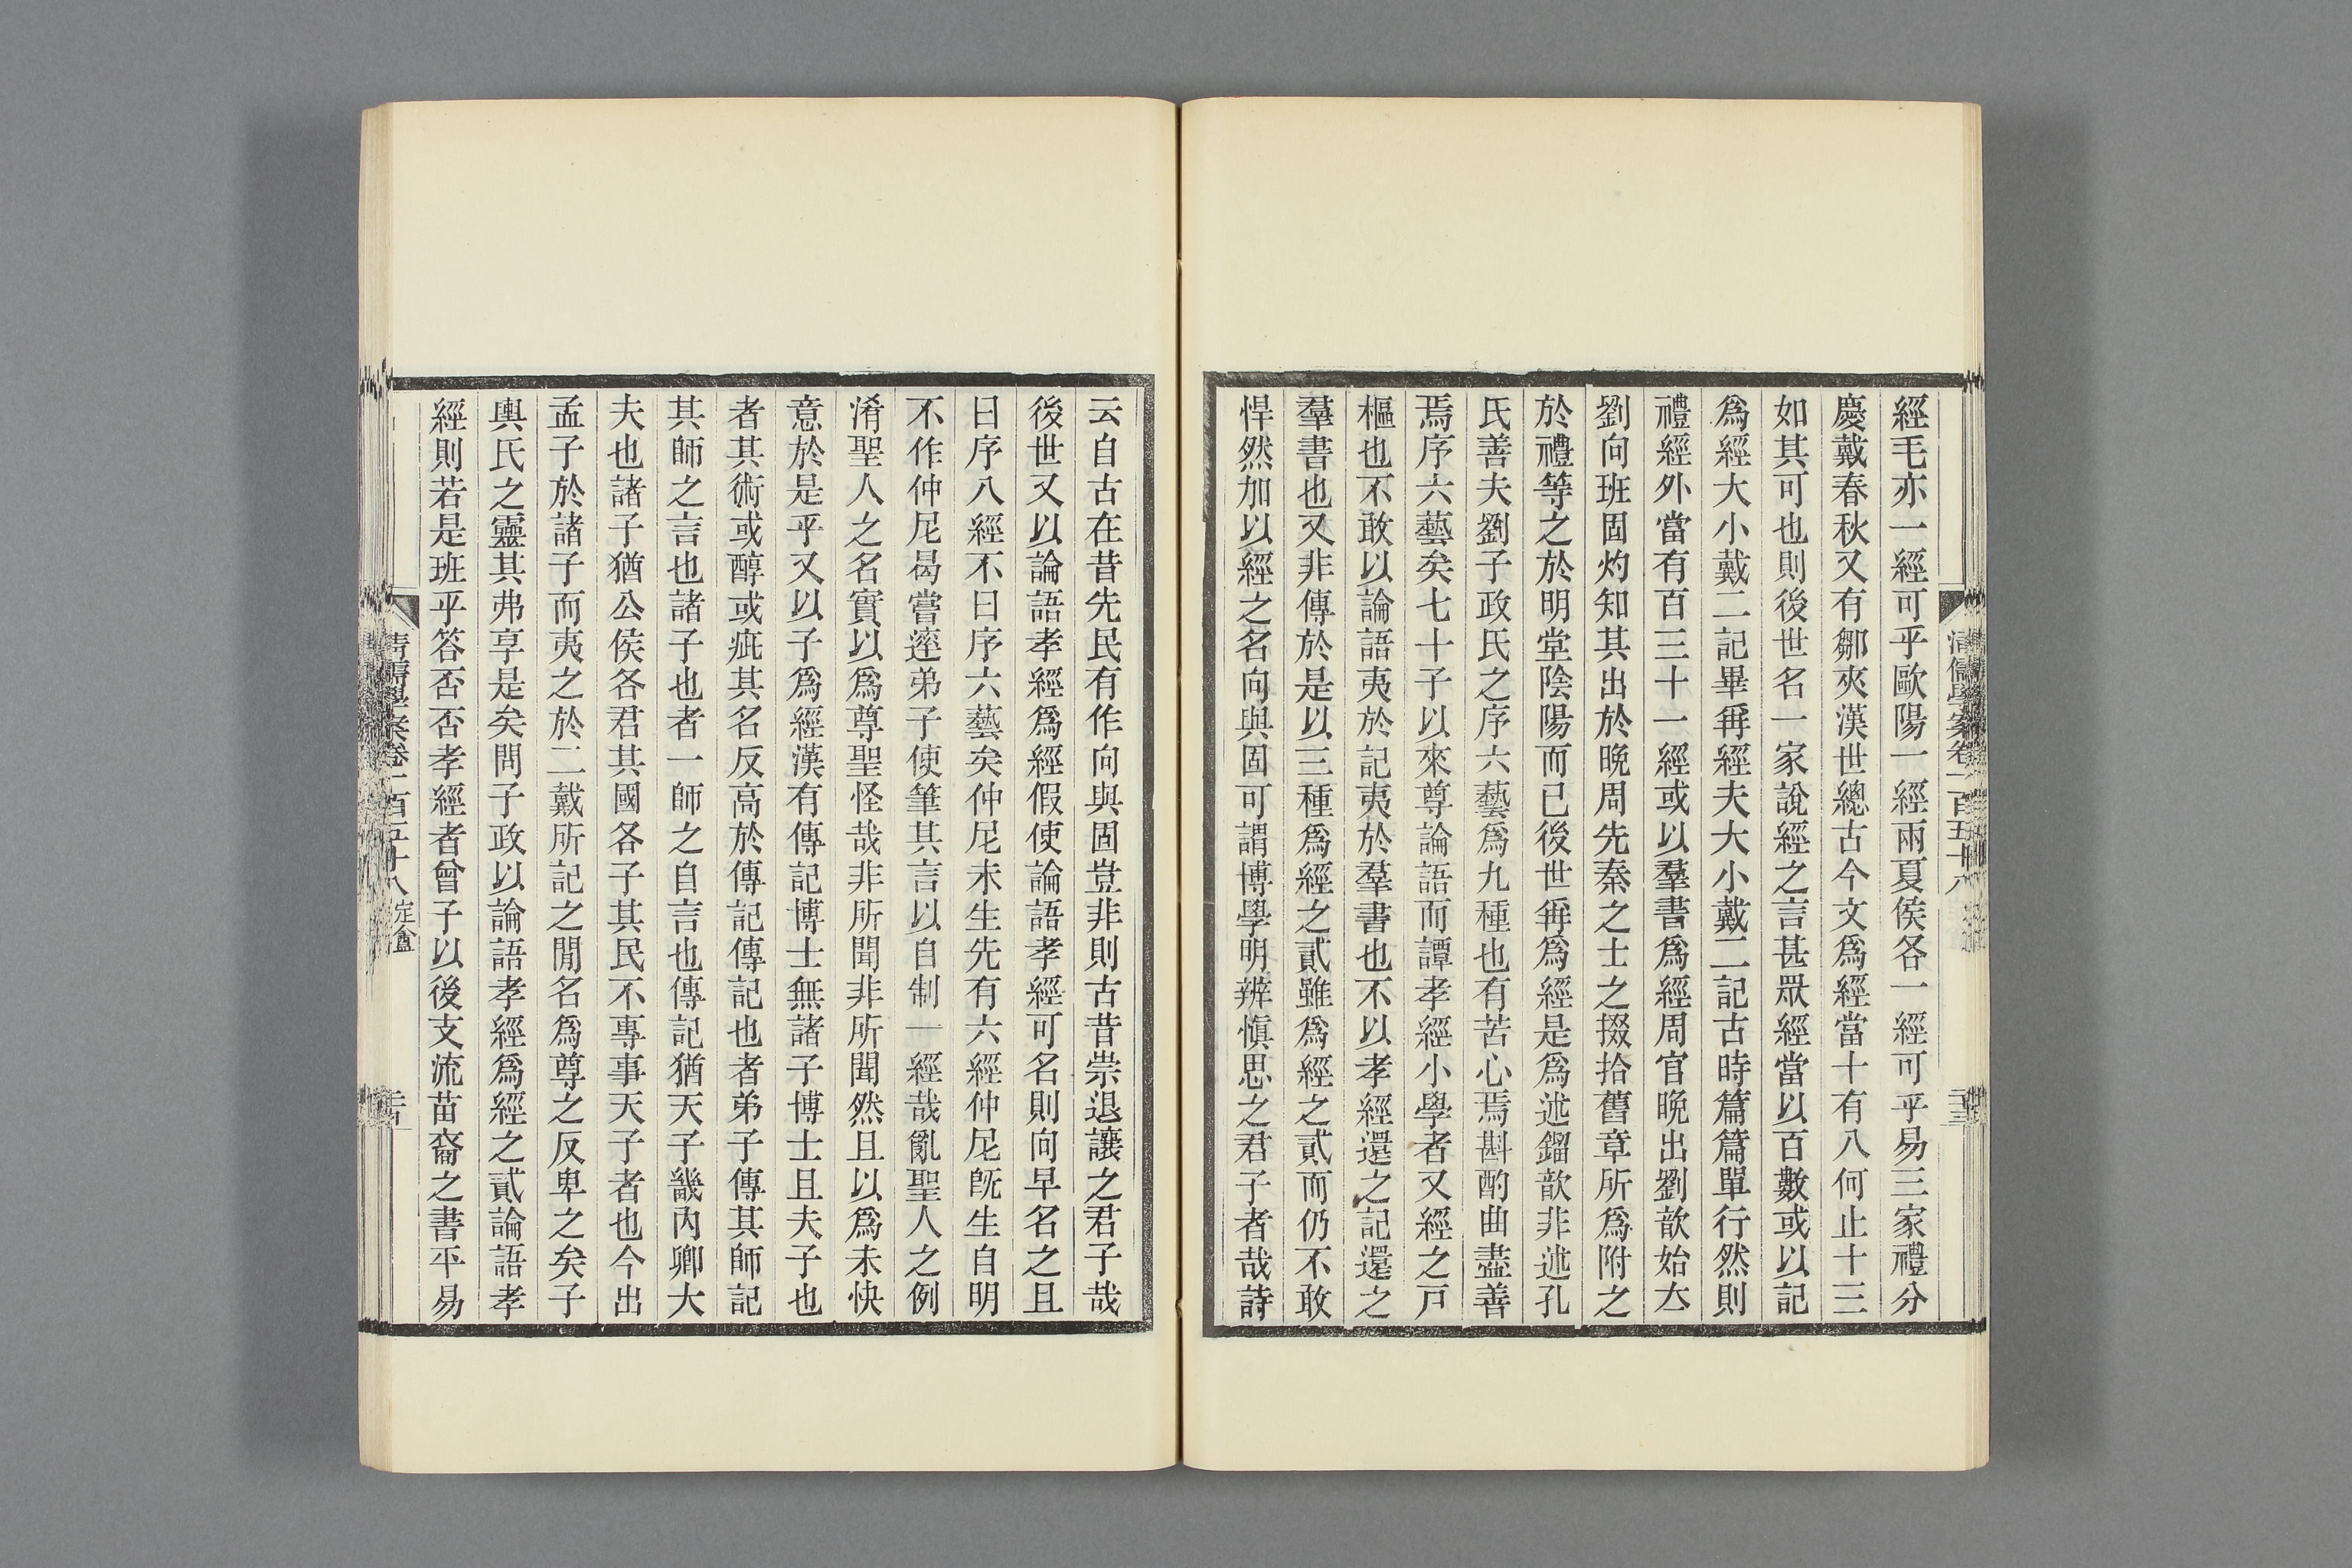 清儒學案卷一百五十八
二十三
經毛亦一經可乎歐陽一經兩夏侯各一經可乎易三家禮分
慶戴春秋又有鄒夾漢世總古今文爲經當十有八何止十三
如其可也則後世名一家說經之言甚眾經當以百數或以記
爲經大小戴二記畢稱經夫大小戴二記古時篇篇單行然則
禮經外當有百三十一經或以羣書爲經周官晚出劉歆始立
劉向班固灼知其出於晚周先秦之士之掇拾舊章所爲附之
於禮等之於明堂陰陽而已後世稱爲經是爲述鎦歆非述孔
氏善夫劉子政氏之序六藝爲九種也有苦心焉斟酌曲盡善
焉序六藝矣七十子以來尊論語而譚孝經小學者又經之戸
樞也不敢以論語夷於記夷於羣書也不以孝經還之記還之
羣書也又非傳於是以三種爲經之貳雖爲經之貳而仍不敢
悍然加以經之名向與固可謂博學明辨愼思之君子者哉詩
云自古在昔先民有作向與固豈非則古昔崇退讓之君子哉
後世又以論語孝經爲經假使論語孝經可名則向早名之且
曰序八經不曰序六藝矣仲尼未生先有六經仲尼旣生自明
不作仲尼曷嘗率弟子使筆其言以自制一經哉亂聖人之例
淆聖人之名實以爲尊聖怪哉非所聞非所聞然且以爲未快
意於是乎又以子爲經漢有傳記博士無諸子博士且夫子也
者其術或醇或疵其名反高於傳記傳記也者弟子傳其師記
其師之言也諸子也者一師之自言也傳記猶天子畿內卿大
夫也諸子猶公侯各君其國各子其民不專事天子者也今出
孟子於諸子而夷之於二戴所記之閒名爲尊之反卑之矣子
輿氏之靈其弗享是矣問子政以論語孝經爲經之貳論語孝
經則若是班乎答否否孝經者曾子以後支流苗裔之書平易
清儒學案卷一百五十八 定盦